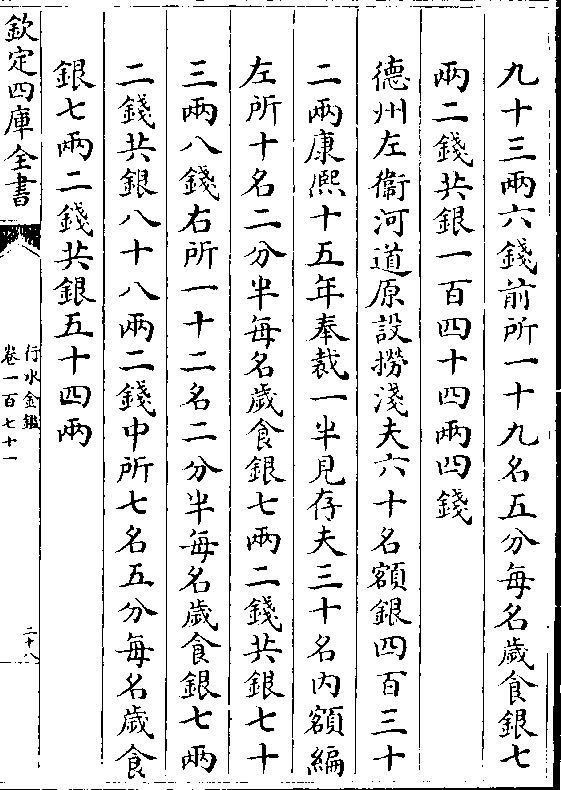 九十三兩六錢前所一十九名五分每名歲食銀七
兩二錢共銀一百四十四兩四錢
德州左衞河道原設撈淺夫六十名額銀四百三十
二兩康熈十五年奉裁一半見存夫三十名内額編
左所十名二分半每名歲食銀七兩二錢共銀七十
三兩八錢右所一十二名二分半每名歲食銀七兩
二錢共銀八十八兩二錢中所七名五分每名歲食
銀七兩二錢共銀五十四兩
欽定四庫全書
行水金鑑
卷一百七十一
二十八